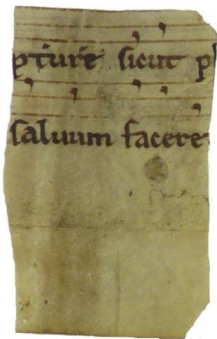 pture sicut p
saluum facere